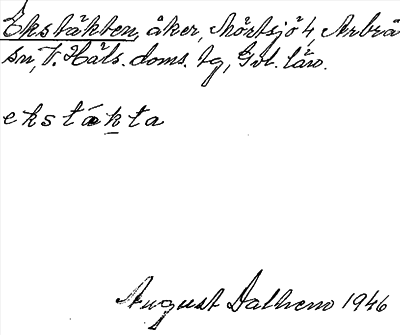 Ekstäkten, åker, Mörtsjö 4, Arbrå
sn, V. Häls. doms. tg, Gvl. län.
ekstàkta
August Dalhem 1946